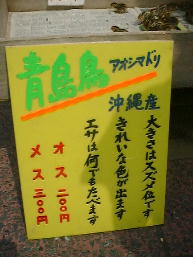 青島鳥 アオシマドリ
沖縄産
大きさはスズメ位です
きれいな色が出ます
エサは何でもたべます
オス 二〇〇円
メス 三〇〇円